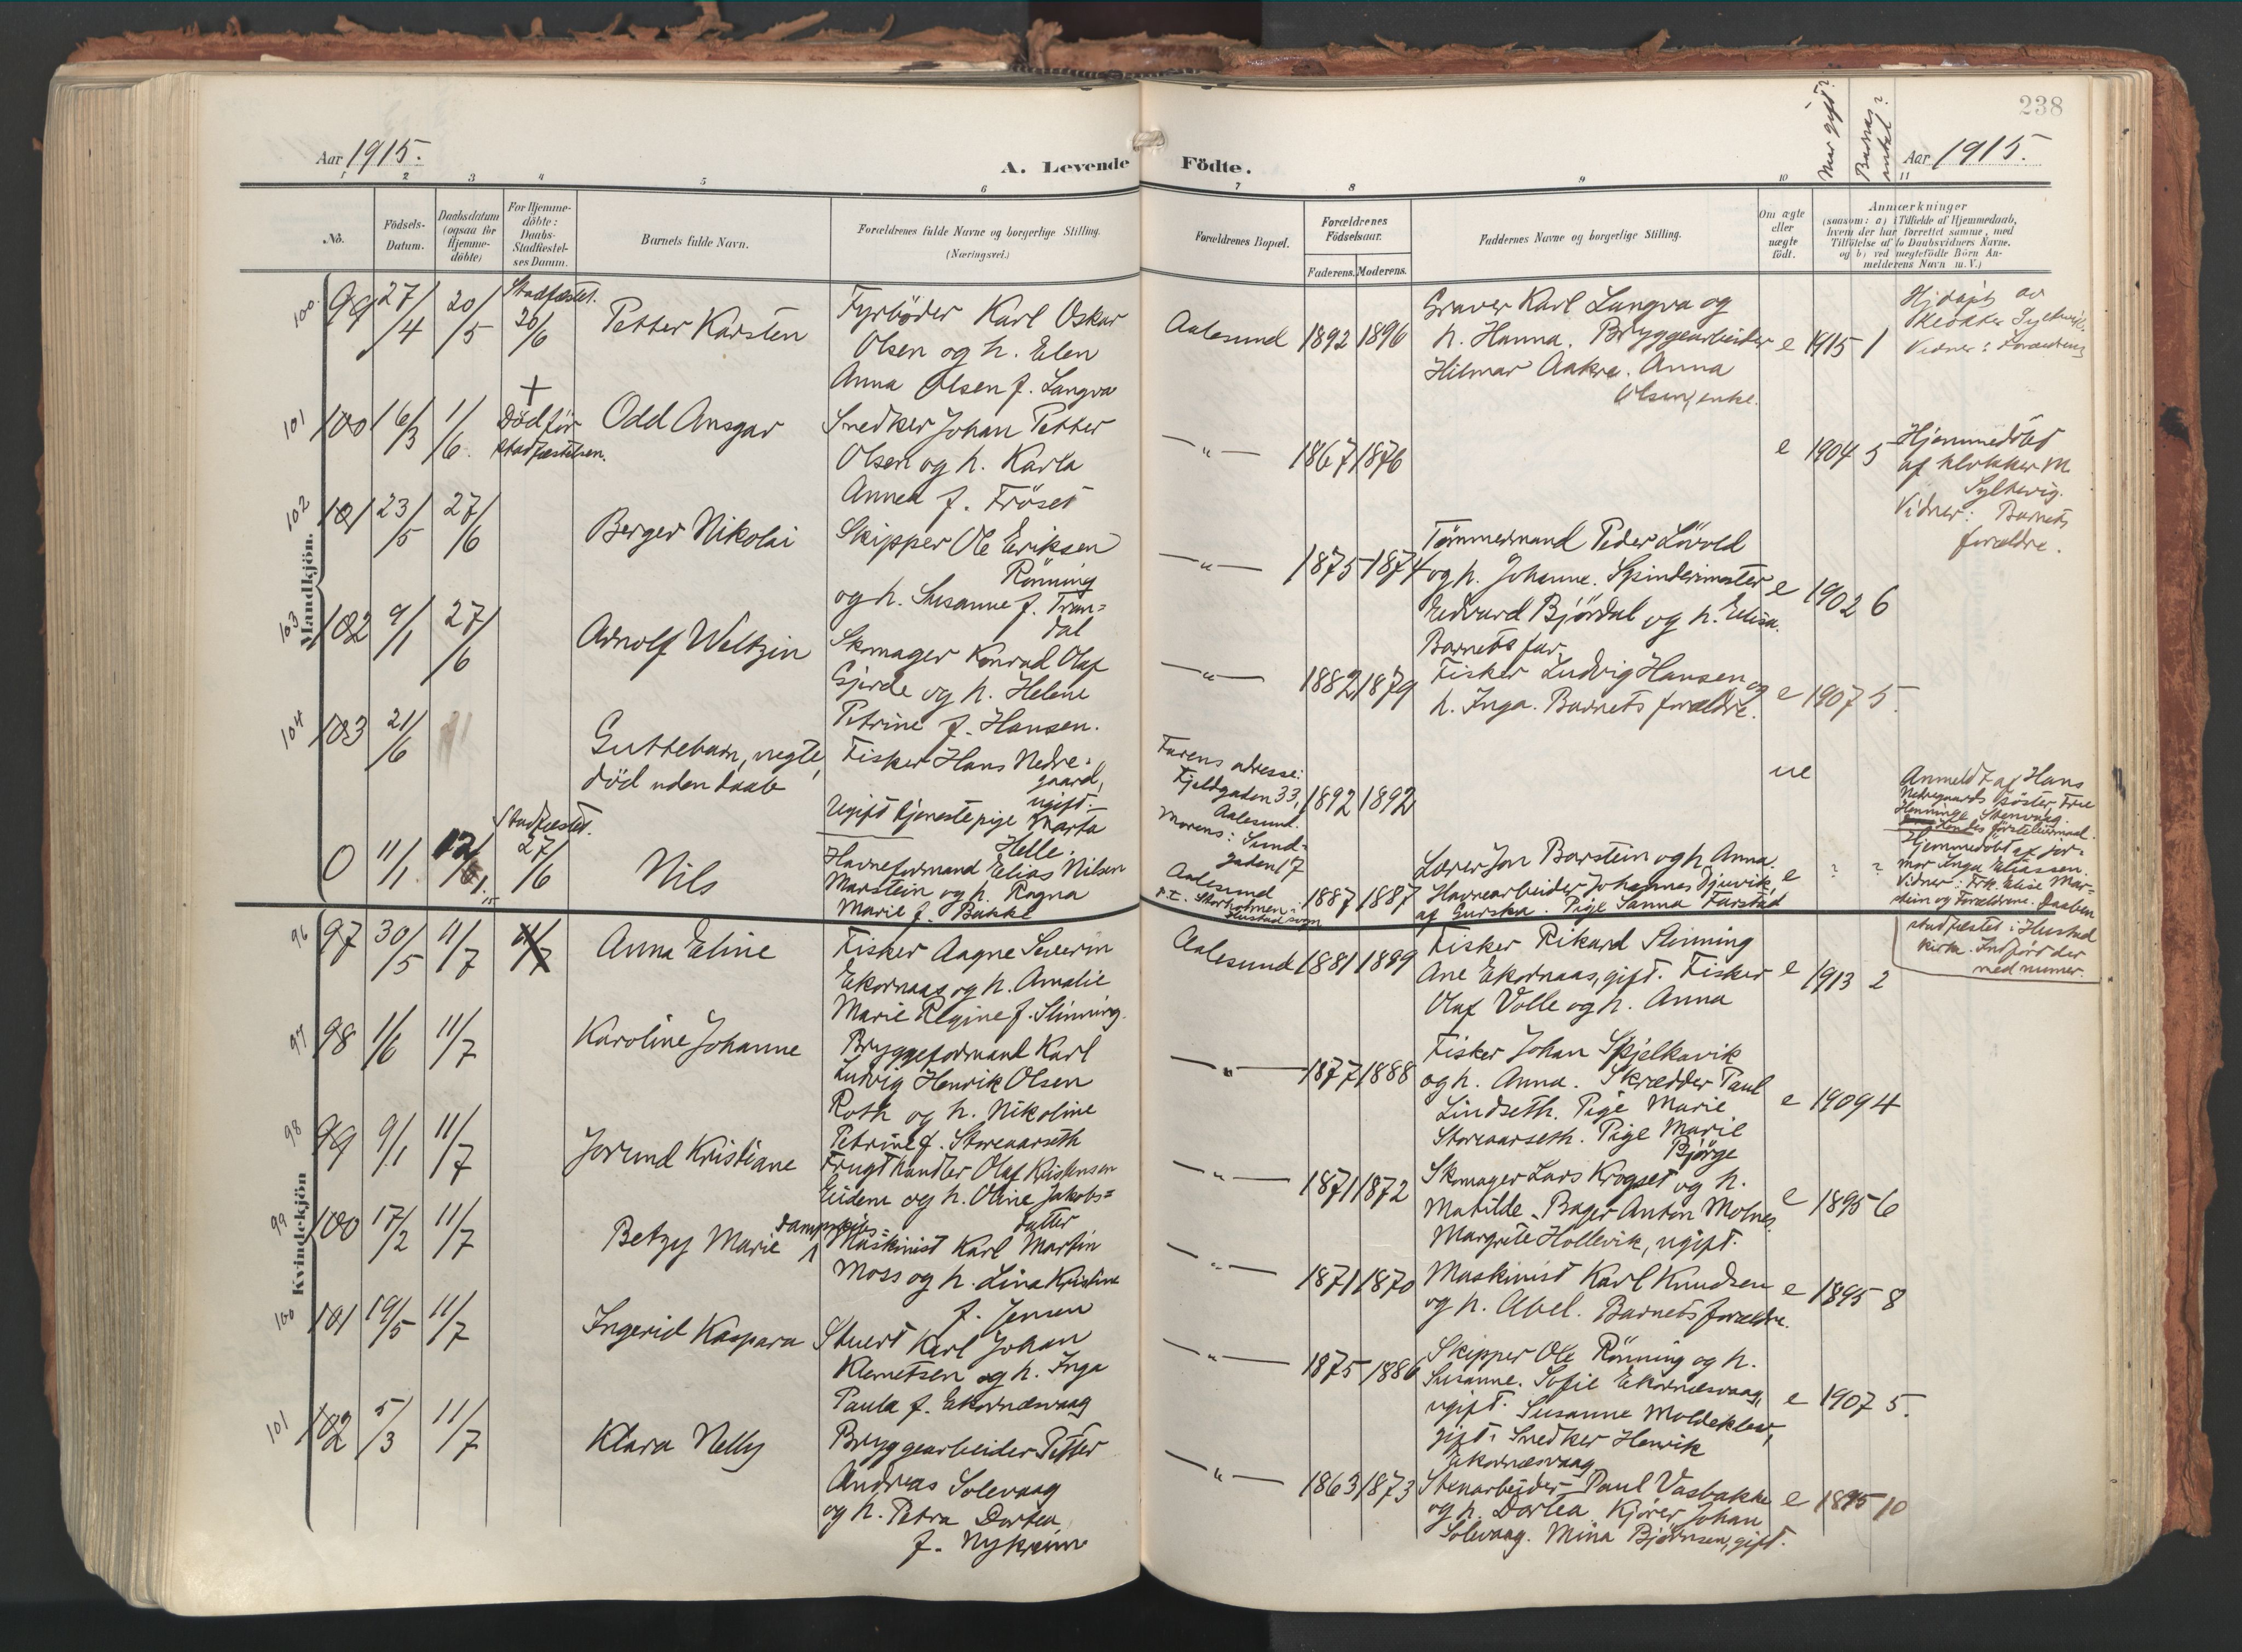 238
Aar 1915.
A. Levende Födte.
Nar gift?
Barnas antal?
Aar 1915.
1 2 3 4 5 6 7 8 9 10 11
No.
Födsels-Datum.
Daabsdatum (ogsaa for Hjemme-döbte)
For Hjemme-döbte: Daabs-Stadfæstel-ses Datum.
Barnets fulde Navn.
Forældrenes fulde Navne og borgerlige Stilling. (Næringsvei.)
Forældrenes Bopæl.
Forældrenes Födselsaar.
Faderens. Moderens.
Faddernes Navne og borgerlige Stilling.
Om ægte eller uægte födt.
Anmærkninger
(saasom: a) i Tilfælde af Hjemmedaab,
hvem der har forrettet samme, med
Tilföielse af to Daabsvidners Navne.
og b) ved uægtefödte Börn An-
melderens Navn m. V.)
Mandkjön.
100 99 27/4 20/5 Stadfæstet. 20/6
Petter Karsten
Fyrböder Karl Oskar
Olsen og h. Elen
Anna Olsen f. Langva
Aalesund 1892 1896
Graver Karl Langva og
h. Hanna. Bryggearbeider
Hilmar Aakre. Anna
Olsen, enke.
e 1915 1
Hjdøpt av
klokker Syltevik.
Vidner: Forældrene
101 100 16/3 1/6. + Död før stadfæstelsen.
Odd Ansgar
Snedker Johan Petter
Olsen og h. Karla
Annea f. Fröset
—"— 1867 1876
e 1904 5
Hjemmedöbt
af klokker M.
Syltevig.
Vidner: Barnets
forældre.
102 101 23/5 27/6
Berger Nikolai
Skipper Ole Eriksen
Rönning
og h. Susanne f. Tran=
dal
—"— 1875 1874
Tömmermand Peder Lövold
og h. Johanne. Spinderimester
Edvard Björdal og h. Elisa.
Barnets far.
e 1902 6
103 102 9/1 27/6
Arnolf Weltzin
Skomager Konrad Olaf
Gjerde og h. Helene
Petrine f. Hansen.
—"— 1882 1879
Fisker Ludvig Hansen og
h. Inga. Barnets forældre.
e 1907 5.
104 103 21/6
Guttebarn, uegte,
död uden daab
Fisker Hans Nedre-
gaard,
ugift.—
Ugift tjenestepige Marta
Helle.
Farens adresse:
Fjeldgaden 33,
Aalesund.
Morens: Sund-
gaden 17
1892 1892
ue
Anmeldt af Hans
Nedregaards söster, Frue
Henninge Stenvaag.
Hendes förstelürmad.
0 11/1 12/1 15 Stadfæstet. 27/6
Nils
Havneformand Elias Nilsen
Marstein og h. Ragna
Marie f. Bakke
Aalesund
p.t. Storholmen i
Hustad sogn
1887 1887
Lærer Jon Barstein og h. Anna.
Havnearbeider Johannes Djuvik,
af Gurska. Pige Sanna Farstad
e ? ?
Hjemmedöbt af jor-
mor Inga Eliassen.
Vidner: Frk. Elise Mar-
stein og Forældrene. Daaben
stadfæstet i Hustad
kirke. Indført der
med numer.
Kvindekjön
96 97 30/5 11/7 11/7
Anna Eline
Fisker Aagne Severin
Ekornaas og h. Amalie
Marie Regine f. Slinning.
Aalesund 1881 1889
Fisker Rikard Slinning
Ane Ekornaas, gift. Fisker
Olaf Volle og h. Anna
e 1913 2
97 98 1/6 11/7
Karoline Johanne
Bryggeformand Karl
Ludvig Henrik Olsen
Roth og h. Nikoline
Petrine f. Storevarseth
—"— 1877 1888
Fisker Johan Spjelkavik
og h. Anna. Skrædder Paul
Lindseth. Pige Marie
Storevarseth. Pige Marie
Bjørge
e 1909 4
98 99 9/1 11/7
Jorund Kristiane
Frugthandler Olaf Kristensen
Eidem og h. Oline Jakobs=
datter
—"— 1871 1872
Skomager Lars Krogset og h.
Matilde. Bager Anton Molnes.
Margrete Hollevik, ugift.
e 1895 6
99 100 17/2 11/7
Betzy Marie
Dampskibs=
Maskinist Karl Martin
Moss og h. Lina Kristine
f. Jensen
—"— 1871 1870
Maskinist Karl Knudsen
og h. Abel. Barnets forældre.
e 1895 8
100 101 19/5 11/7
Ingerid Kaspara
Stuert Karl Johan
Klemetsen og h. Inga
Paula f. Ekornæsvaag
—"— 1875 1886
Skipper Ole Rönning og h.
Susanne. Sofie Ekornæsvaag,
ugift. Susanne Moldeklev,
gift. Snedker Henrik
Ekornæsvaag
e 1907 5.
101 102 5/3 11/7
Klara Nelly
Bryggearbeider Petter
Andreas Solevaag
og h. Petra Dortea
f. Nykreim
—"— 1863 1873
Stenarbeider Paul Vasbakke
og h. Dortea. Kjörer Johan
Solevaag. Mina Bjørnsen, gift.
e 1895 10